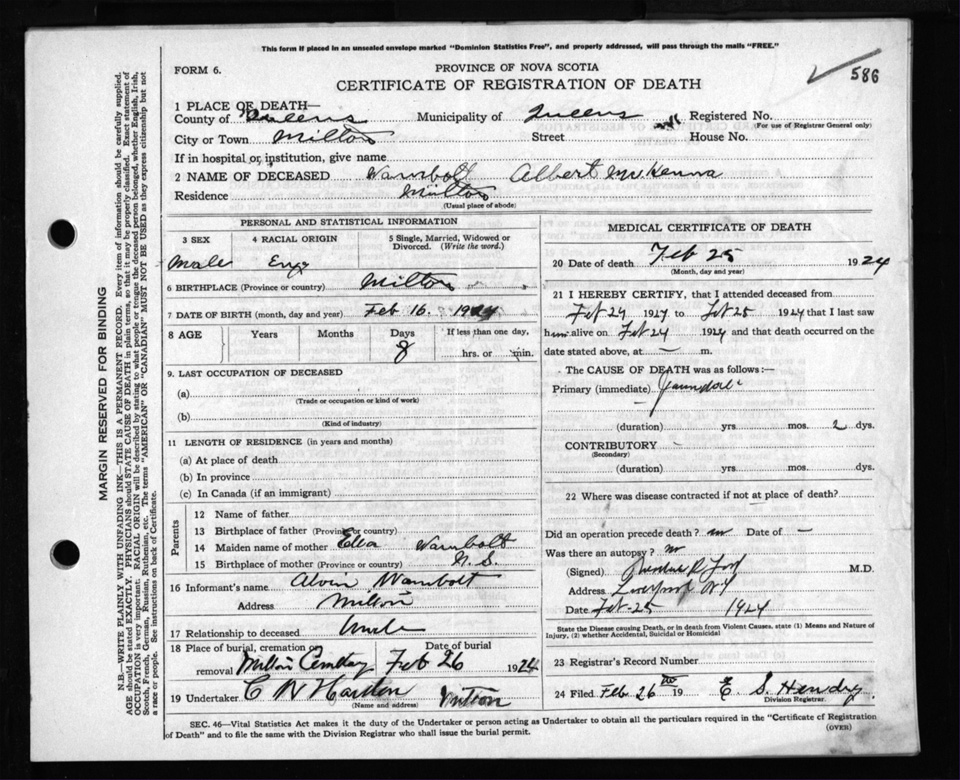 This form if placed in an unsealed envelope marked "Dominion Statistics Free", and properly addressed, will pass through the mails "FREE."
586
FORM 6.
PROVINCE OF NOVA SCOTIA
CERTIFICATE OF REGISTRATION OF DEATH
1 PLACE OF DEATH—
County of Queens Municipality of Queens Registered No.
(For use of Registrar General only)
City or Town Milton Street House No.
If in hospital or institution, give name
2 NAME OF DECEASED Wambolt Albert McKenna
Residence Milton
(Usual place of abode)
PERSONAL AND STATISTICAL INFORMATION
3 SEX 4 RACIAL ORIGIN 5 Single, Married, Widowed or Divorced. (Write the word.)
Male Eng
6 BIRTHPLACE (Province or country) Milton
7 DATE OF BIRTH (month, day and year) Feb 16. 1924
8 AGE Years Months Days If less than one day,
8 hrs. or min.
9. LAST OCCUPATION OF DECEASED
(a)
(Trade or occupation or kind of work)
(b)
(Kind of industry)
11 LENGTH OF RESIDENCE (in years and months)
(a) At place of death
(b) In province
(c) In Canada (if an immigrant)
Parents
12 Name of father
13 Birthplace of father (Province or country)
14 Maiden name of mother Ella Wambolt
15 Birthplace of mother (Province or country) N. S.
16 Informant's name Alvin Wambolt
Address Milton
17 Relationship to deceased Uncle
18 Place of burial, cremation or removal Date of burial
Milton Cemetery Feb 26 1924
19 Undertaker C W Harlon Milton
(Name and address)
MEDICAL CERTIFICATE OF DEATH
20 Date of death Feb 25 1924
(Month, day and year)
21 I HEREBY CERTIFY, that I attended deceased from
Feb 24 1924 to Feb 25 1924 that I last saw
him alive on Feb 24 1924 and that death occurred on the
date stated above, at — m.
The CAUSE OF DEATH was as follows:—
Primary (immediate) Jaundice
(duration) yrs. mos. 2 dys.
CONTRIBUTORY —
(Secondary)
(duration) yrs. mos. dys.
22 Where was disease contracted if not at place of death?
Did an operation precede death? no Date of —
Was there an autopsy? no
(Signed) Ford M.D.
Address Liverpool N.S
Date Feb 25 1924
State the Disease causing Death, or in death from Violent Causes, state (1) Means and Nature of
Injury, (2) whether Accidental, Suicidal or Homicidal
23 Registrar's Record Number
24 Filed Feb 26 19 E. S. Hendry
Division Registrar.
SEC. 46—Vital Statistics Act makes it the duty of the Undertaker or person acting as Undertaker to obtain all the particulars required in the "Certificate of Registration
of Death" and to file the same with the Division Registrar who shall issue the burial permit.
(OVER)
MARGIN RESERVED FOR BINDING
N.B.—WRITE PLAINLY WITH UNFADING INK—THIS IS A PERMANENT RECORD. Every item of information should be carefully supplied.
AGE should be stated EXACTLY. PHYSICIANS should STATE CAUSE OF DEATH in plain terms, so that it may be properly classified. Exact statement of
OCCUPATION is very important. RACIAL ORIGIN will be described by stating to what people or tongue the deceased person belonged, whether English, Irish,
Scotch, French, German, Russian, Ruthenian, etc. The terms "AMERICAN" OR "CANADIAN" MUST NOT BE USED as they express citizenship but not
a race or people. See instructions on back of Certificate.